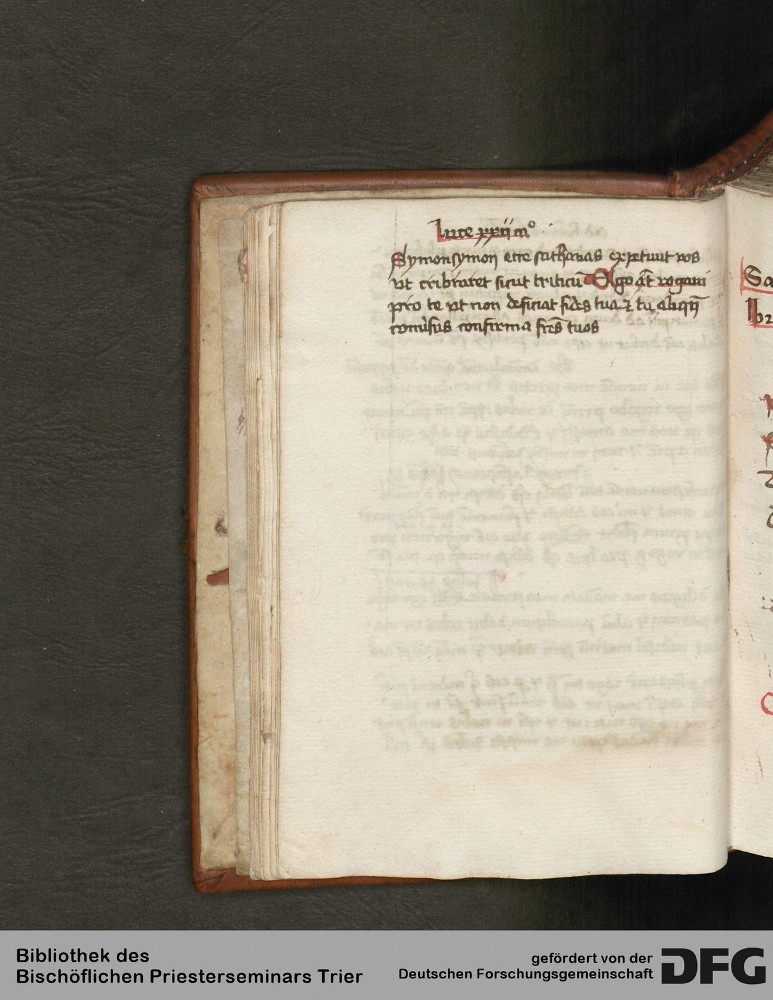 luce xxii mº
Symon symon ecce sathanas expetiuit vos
vt cribraret sicut triticū Ego āt rogaui
pro te vt non deficiat fides tua ⁊ tu aliqn̄
conuͥsus confirma fr̄es tuos
Sa
Bibliothek des
Bischöflichen Priesterseminars Trier
gefördert von der
Deutschen Forschungsgemeinschaft
DFG